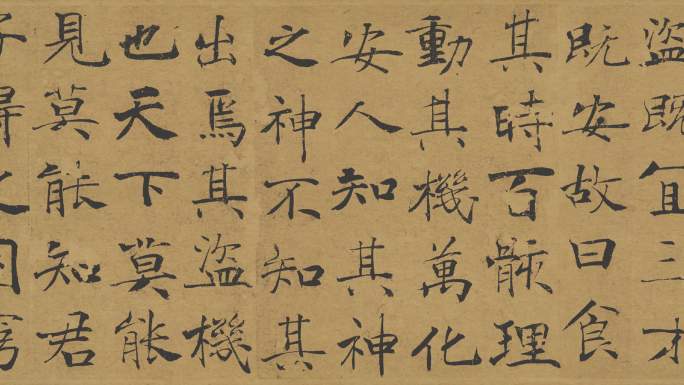 盜既宜三才
既安故曰食
其時百骸理
動其機萬化
安人知其神
之神不知其
出焉其盜機
也天下莫能
見莫能知君
子得之固窮